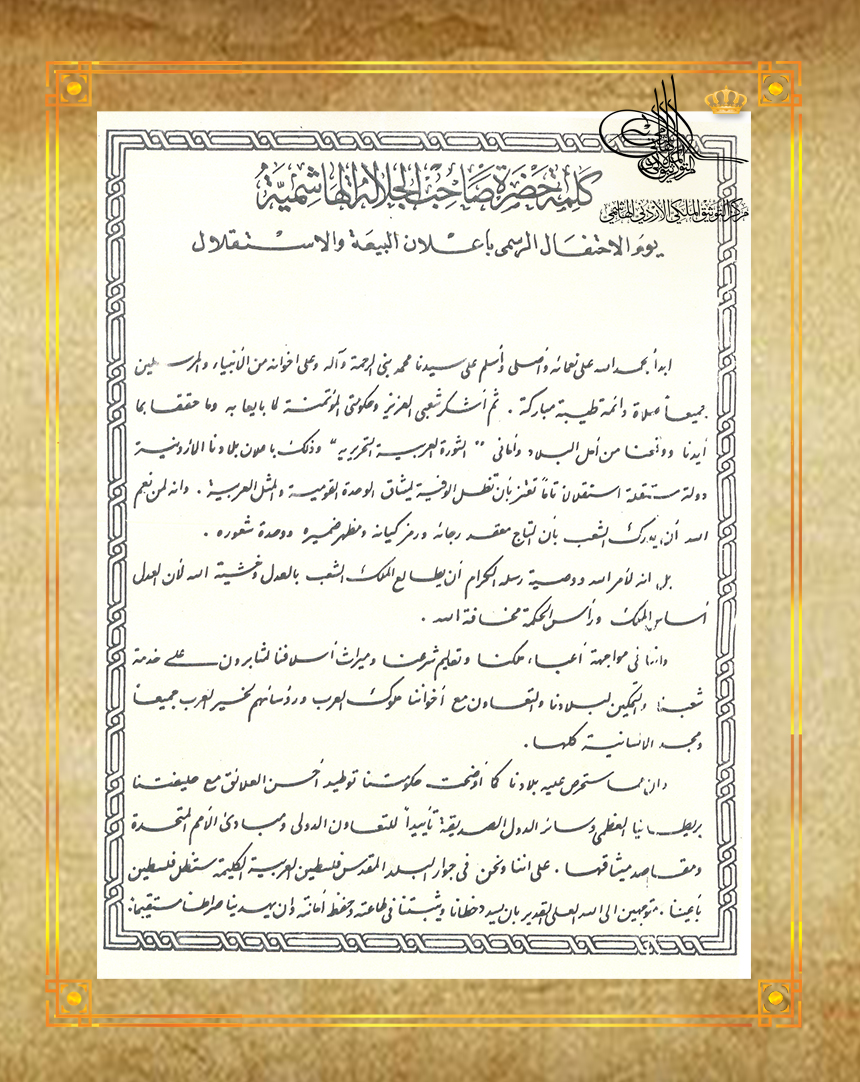 مركز التوثيق الملكي الأردني الهاشمي
كلمة حضرة صاحب الجلالة الهاشمية
يوم الاحتفال الرسمي باعلان البيعة والاستقلال
ابدأ بحمد الله على نعمائه وأصلي وأسلم على سيدنا محمد نبي الرحمة وآله وعلى اخوانه من الأنبياء والمرسلين
جميعاً صلاة دائمة طيبة مباركة . ثم أشكر شعبي العزيز وحكومتي المؤتمنة لما بايعا به وما حققا بما
أيدنا ووثقنا من أمل البلاد وأماني " الثورة العربية التحريرية " وذلك باعلان بلادنا الأردنية
دولة مستقلة استقلالاً تاماً تعتز بأن تظل الوفية لميثاق الوحدة القومية والمثل العربية . وانه لمن نعم
الله أن يدرك الشعب بأن التاج معقد رجائه ورمز كيانه ومظهر ضميره ووحدة شعوره .
بل انه لأمر الله ووصية رسله الكرام أن يطالع الملك الشعب بالعدل وخشية الله لأن العدل
أساس الملك ورأس الحكمة مخافة الله .
واننا في مواجهة أعباء ملكنا وتعاليم شرعنا وميراث أسلافنا لمثابرون على خدمة
شعبنا والتمكين لبلادنا والتعاون مع أخواننا ملوك العرب ورؤسائهم لخير العرب جميعاً
ومجد الانسانية كلها .
وان مما ستحرص عليه بلادنا كما أوضحت حكومتنا توطيد أحسن العلائق مع حليفتنا
بريطانيا العظمى وسائر الدول الصديقة تأييداً للتعاون الدولي ومبادئ الأمم المتحدة
ومقاصد ميثاقها . على اننا ونحن في جوار البلد المقدس فلسطين العربية الكليمة ستظل فلسطين
بأعيننا . متوجهين الى الله العلي القدير بان يسدد خطانا ويثبتنا في طاعته وحفظ أمانته وان يهدينا صراطاً مستقيماً .